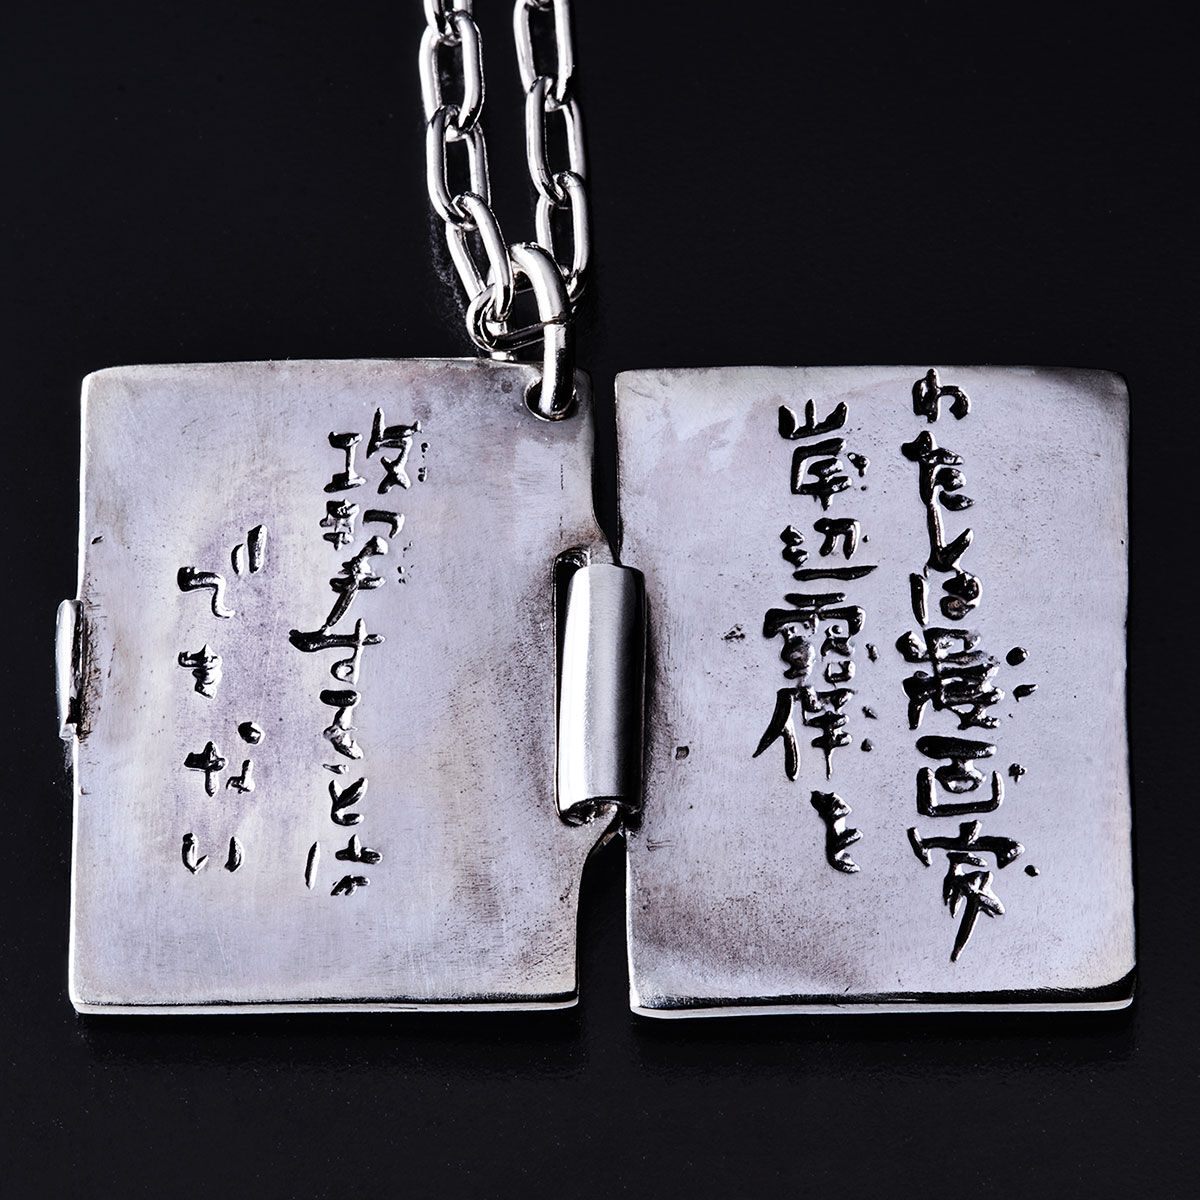 わたしは漫画家
岸辺露伴を
攻撃することは
できない